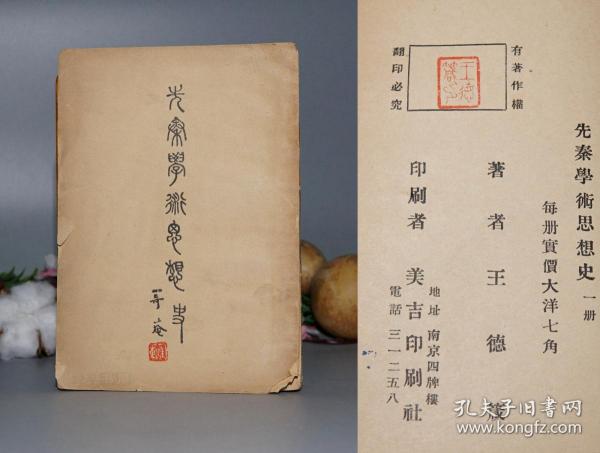 先秦學術思想史
有著作權
翻印必究
王德
先秦學術思想史 一册
每册實價大洋七角
著者 王德箴
印刷者 美吉印刷社
地址 南京四牌樓
電話 三一二五八
孔夫子旧书网
www.kongfz.com